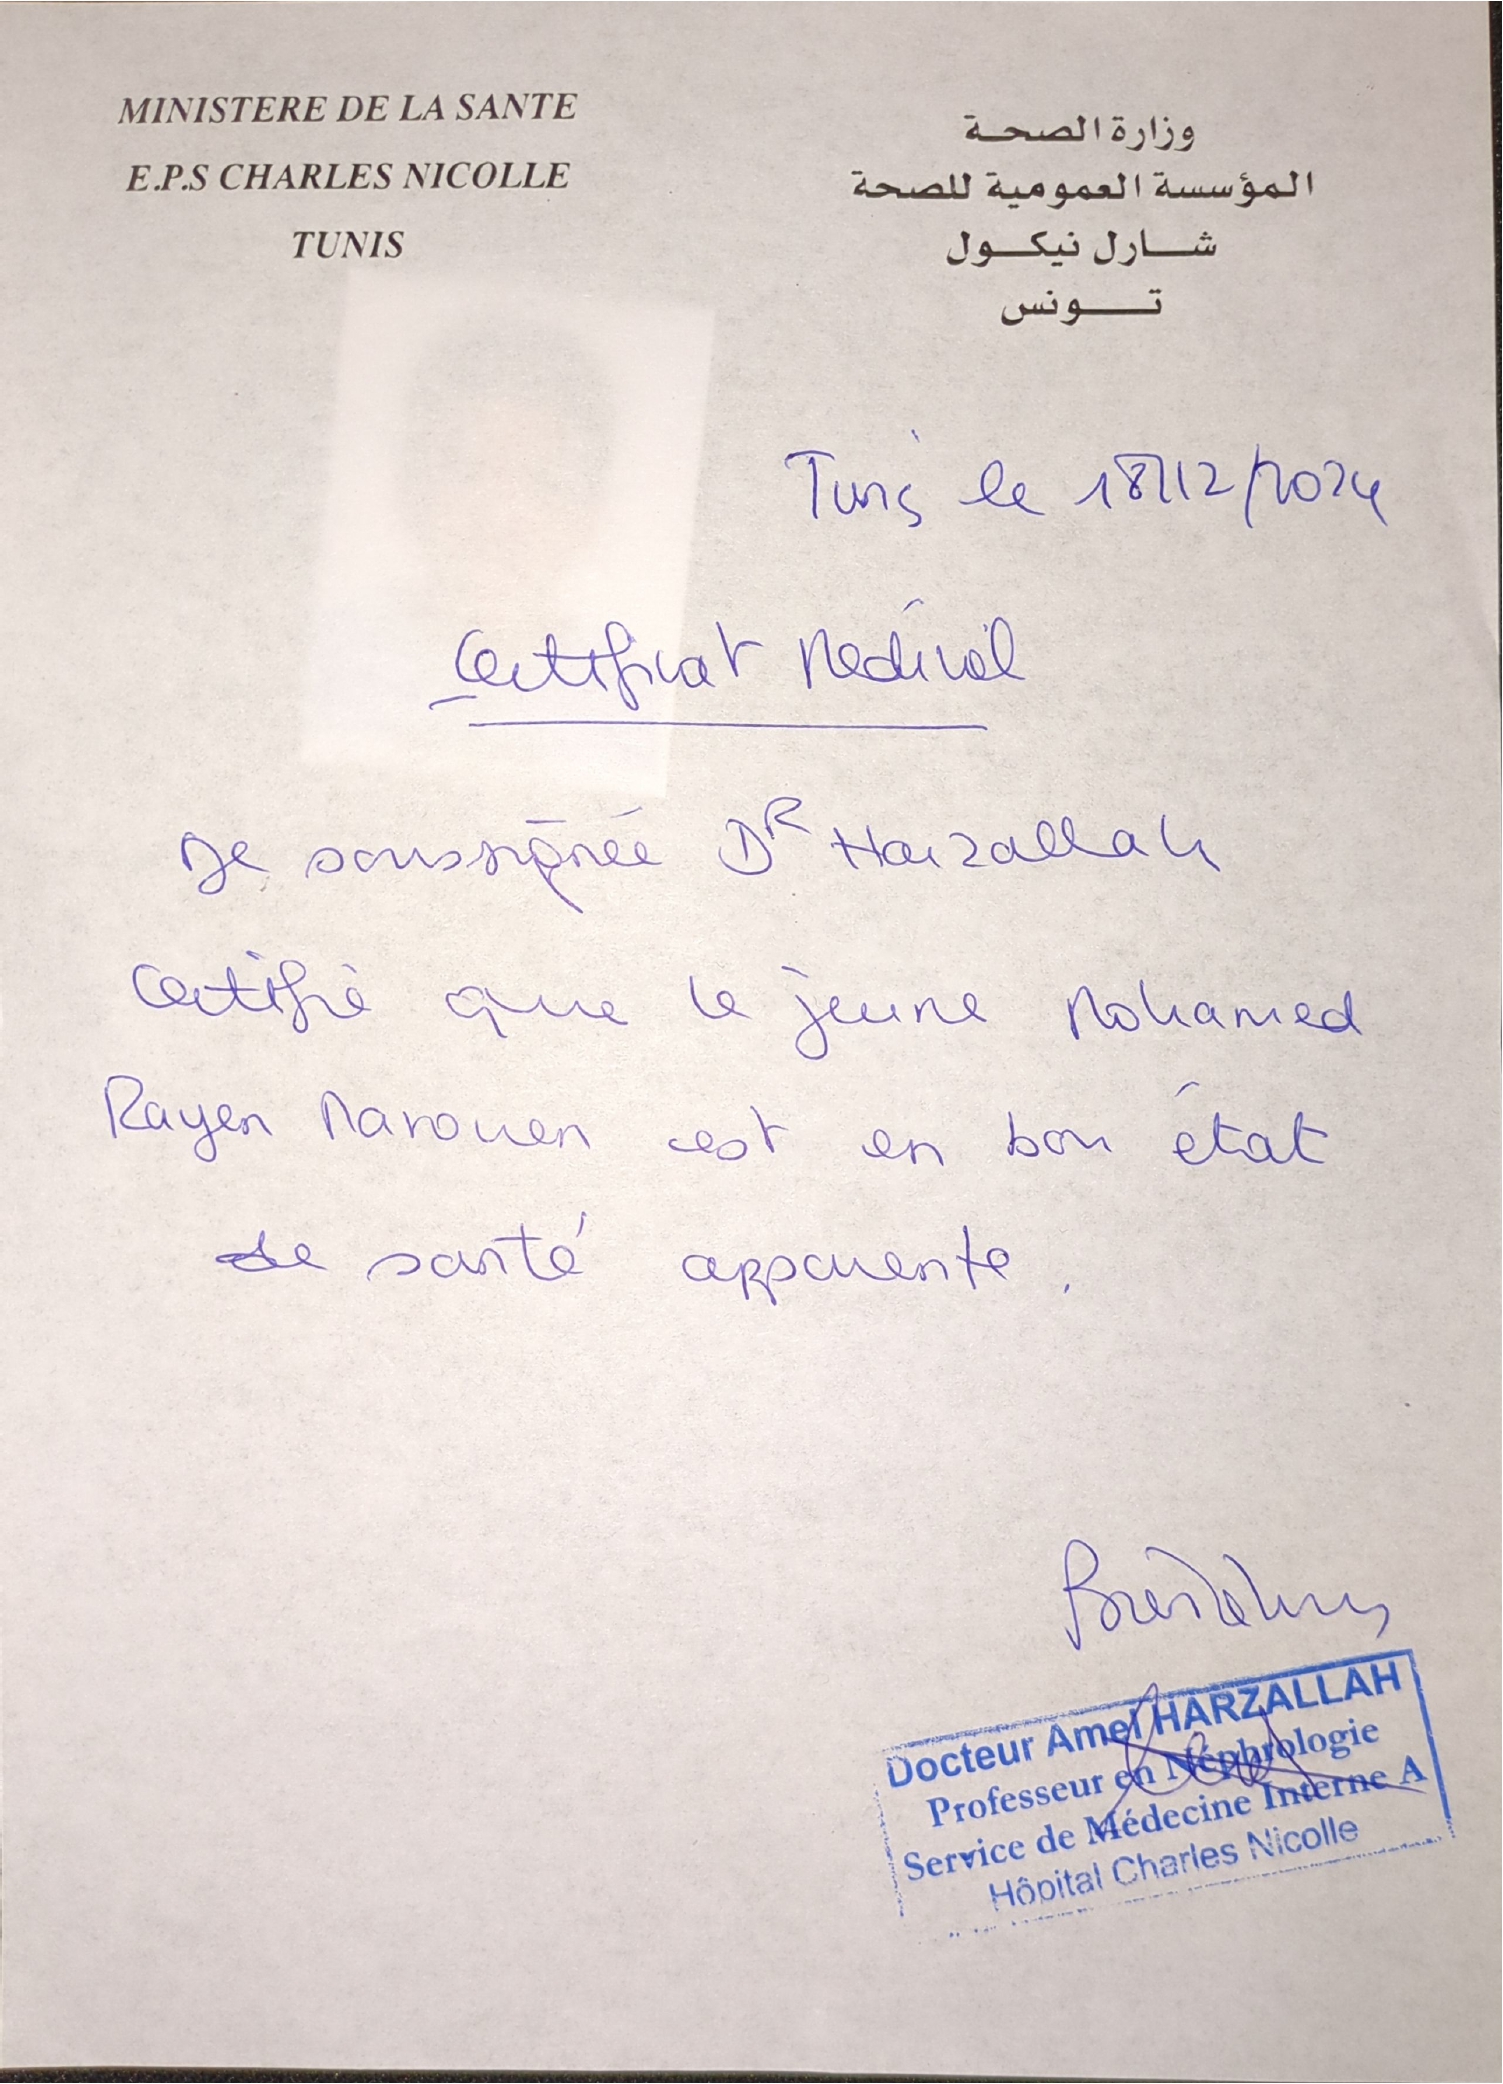 MINISTERE DE LA SANTE
E.P.S CHARLES NICOLLE
TUNIS
وزارة الصحة
المؤسسة العمومية للصحة
شارل نيكول
تونس
Tunis le 18/12/2024
Certificat Médical
Je soussignée DR Harzallah
Certifie que le jeune Mohamed
Rayen Marouen est en bon état
de santé apparente.
Docteur Amel HARZALLAH
Professeur en Néphrologie
Service de Médecine Interne A
Hôpital Charles Nicolle